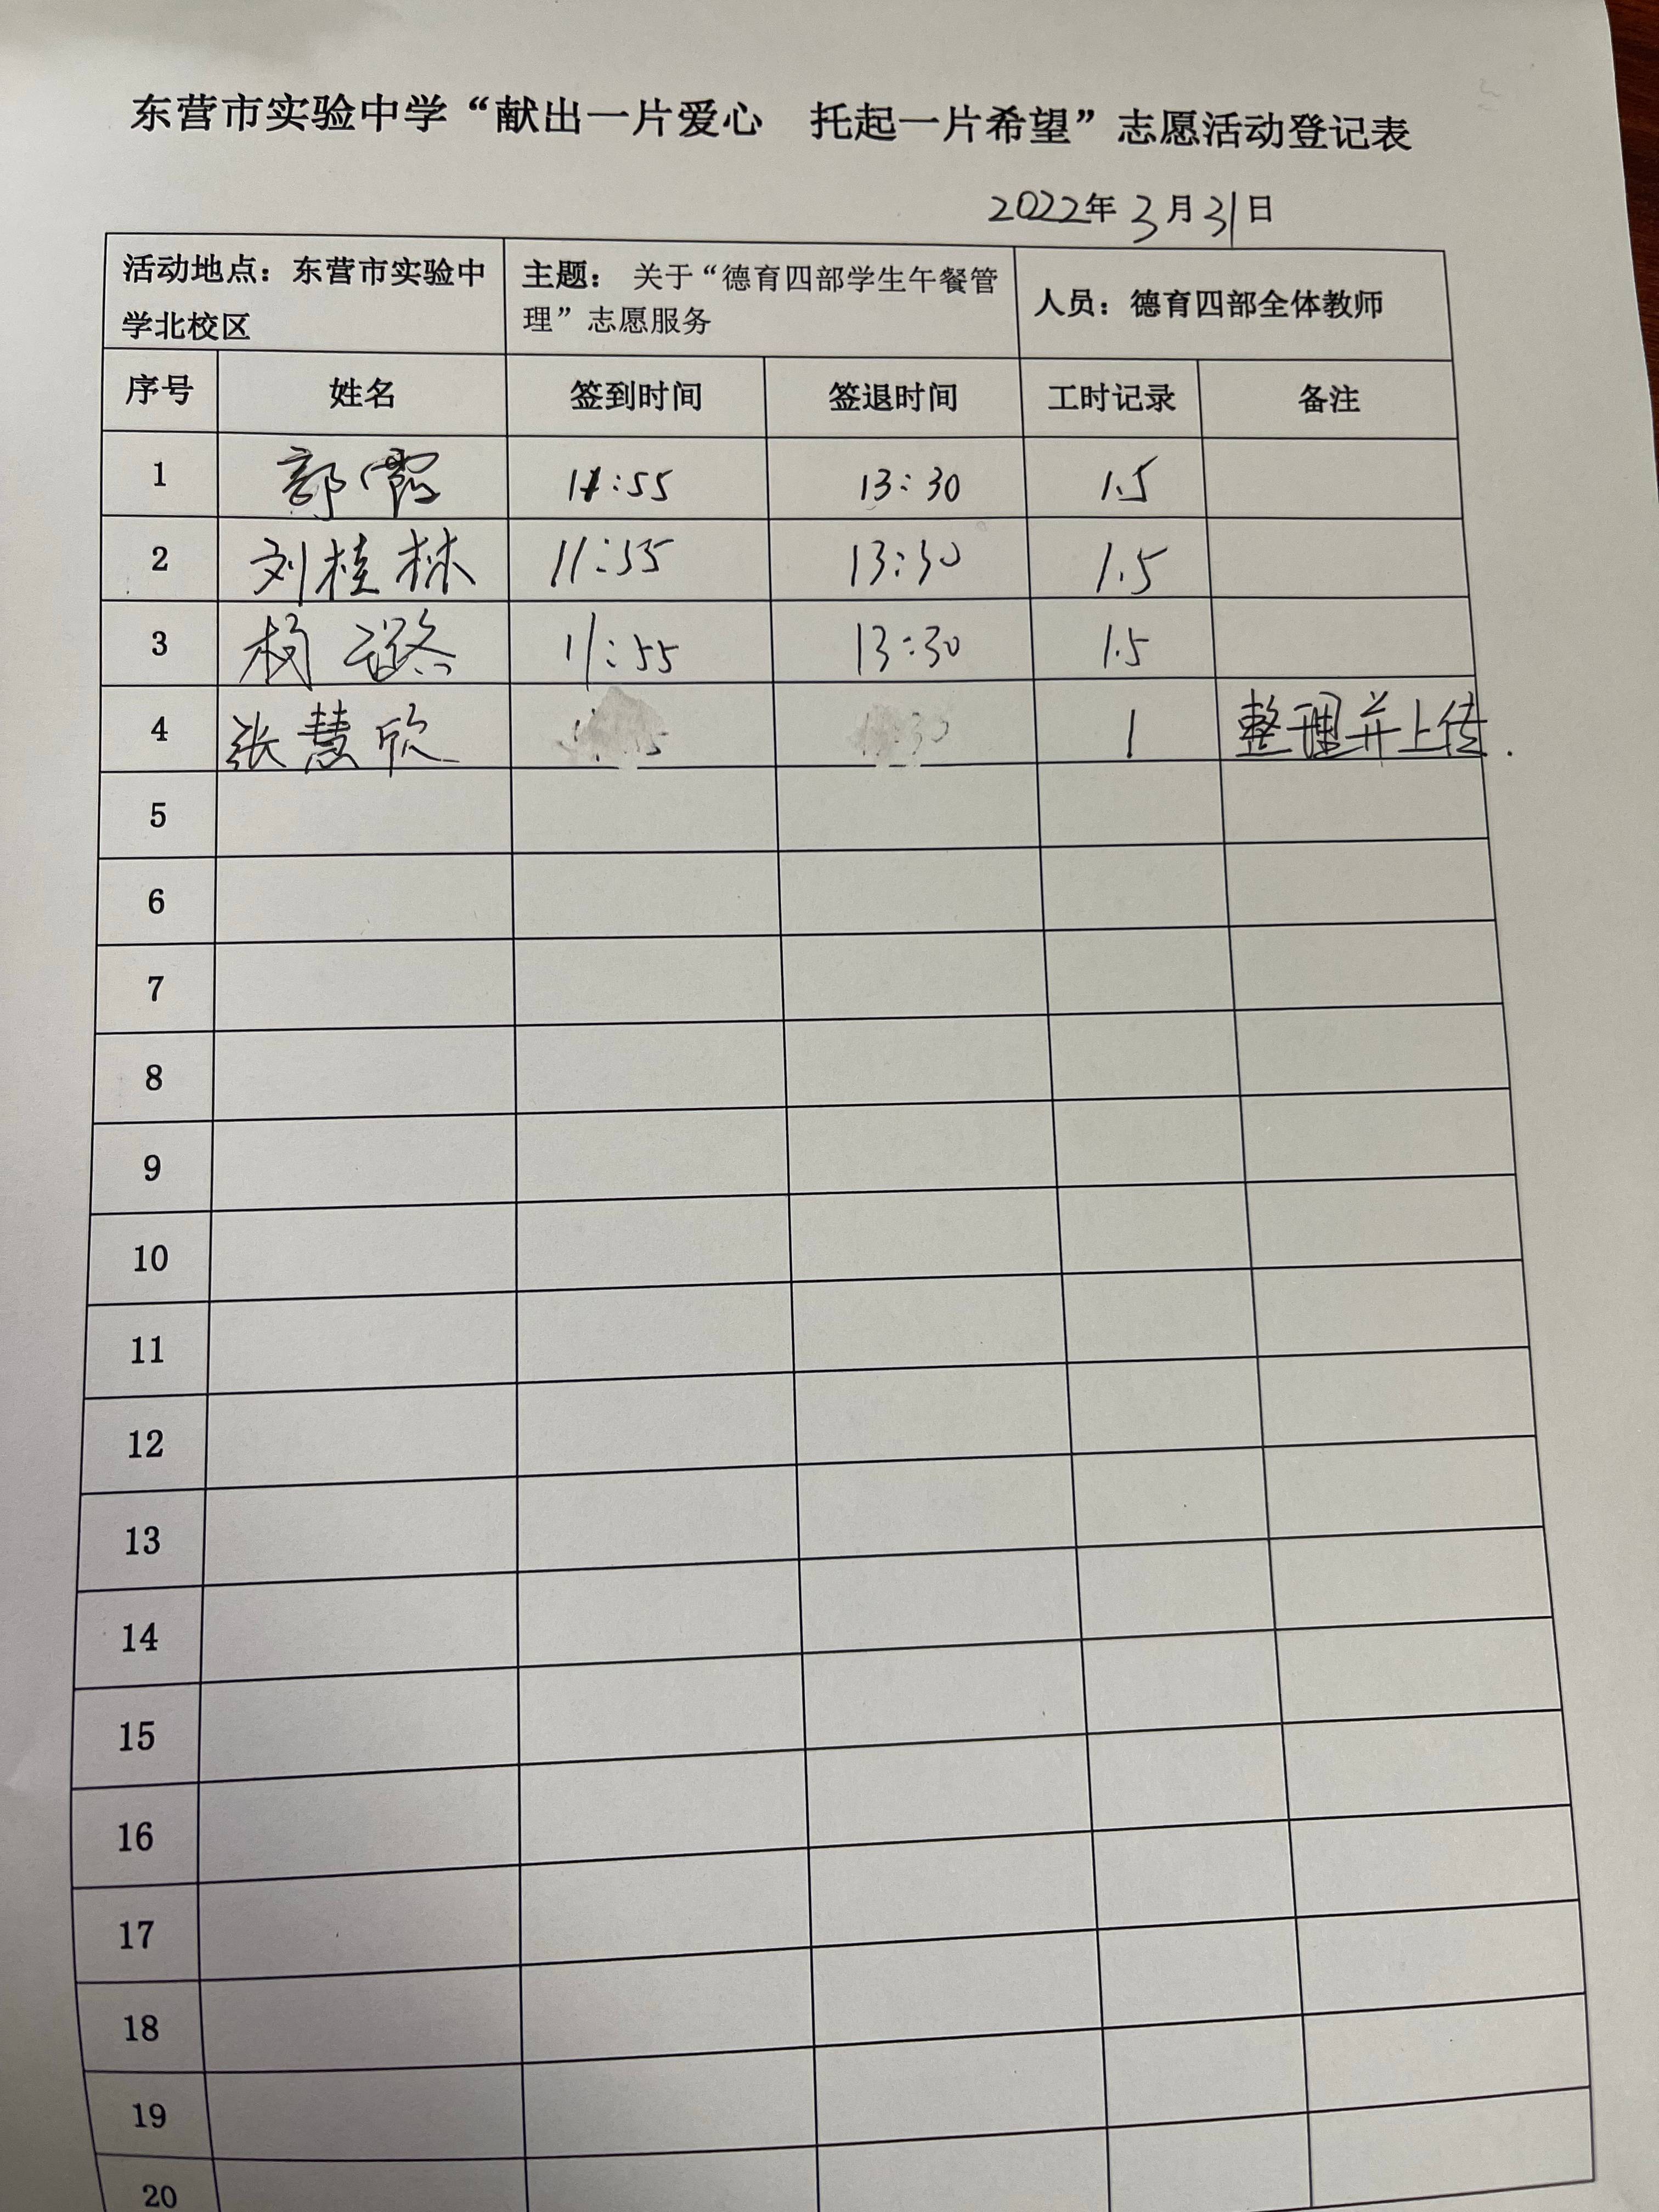 东营市实验中学“献出一片爱心 托起一片希望”志愿活动登记表
2022年 3月 31日
活动地点：东营市实验中
学北校区
主题： 关于“德育四部学生午餐管
理”志愿服务
人员：德育四部全体教师
序号 姓名 签到时间 签退时间 工时记录 备注
1 11:55 13:30 1.5
2 刘桂林 11:55 13:30 1.5
3 杨璐 11:55 13:30 1.5
4 张慧欣 1 整理并上传.
5
6
7
8
9
10
11
12
13
14
15
16
17
18
19
20